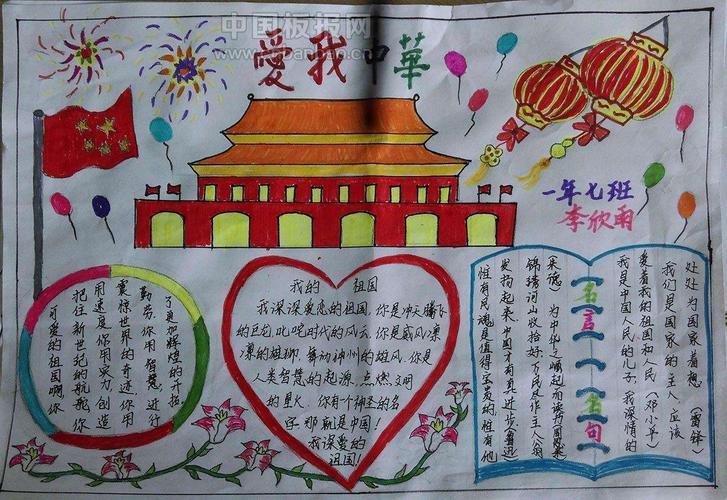 中国板报网
愛我中華
一年七班
李欣雨
可爱的祖国啊，你
把住新世纪的航舵，你
用速度，你用实力创造
震惊世界的奇迹，你用
勤劳，你用智慧，进行
了更加辉煌的开拓
我的 祖国
我深深爱恋的祖国，你是冲天腾飞
的巨龙，叱咤时代的风云，你是威风凛
凛的雄狮，舞动神州的雄风，你是
人类智慧的起源，点燃文明
的星火，你有一个神圣的名
字，那就是中国！
我深爱的
祖国！
惟有民魂是值得宝贵的，惟有他
发扬起来，中国才有真进步（鲁迅）
锦绣河山收拾好，万民尽作主人翁
（朱德） 为中华之崛起而读书 周恩来
名言名句
我是中国人民的儿子，我深情的
爱着我的祖国和人民（邓小平）
我们是国家的主人，应该
处处为国家着想（雷锋）